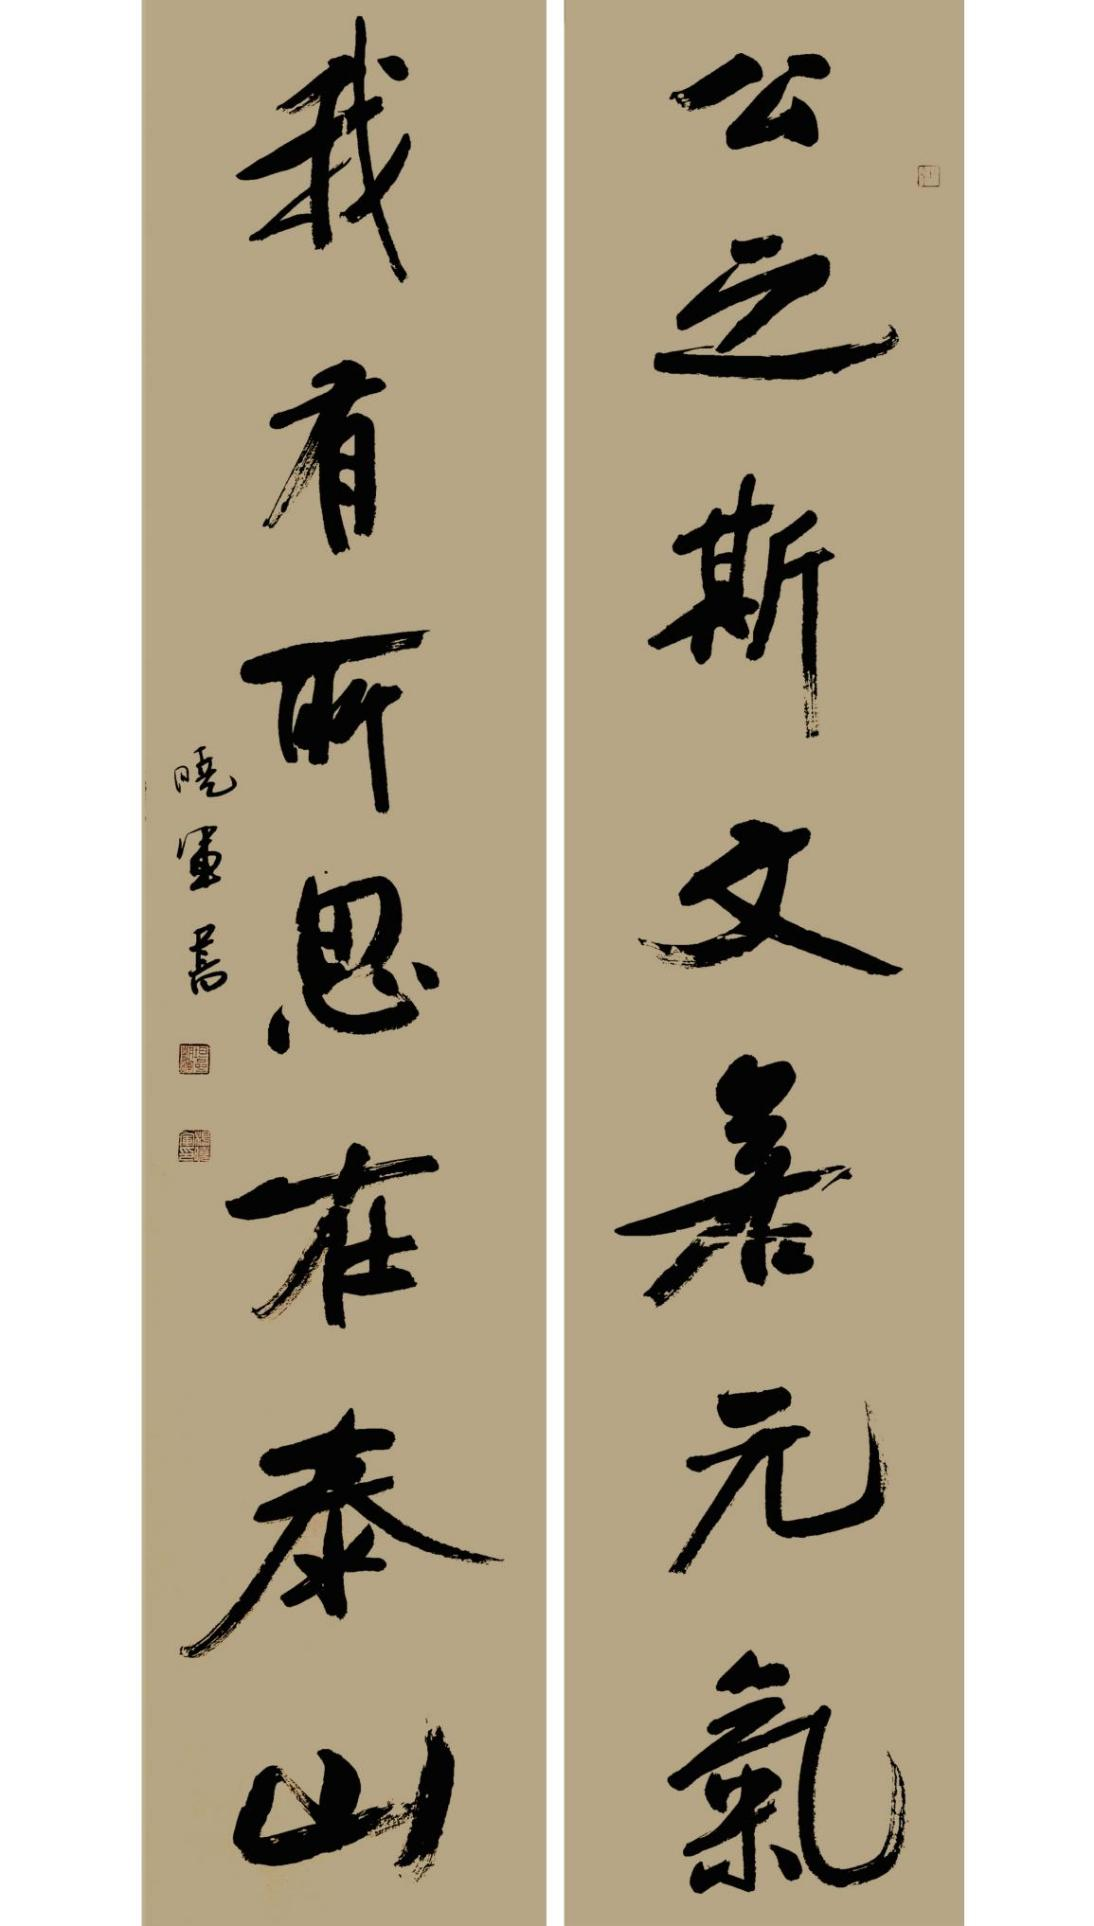 公之斯文若元氣
我有所思在泰山
曉軍書